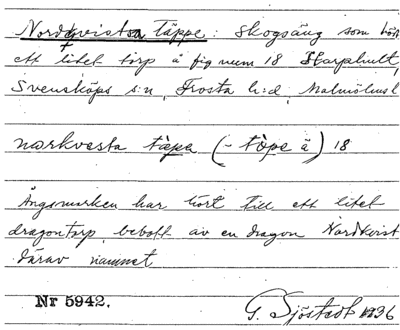 Nordkvistsa täppe: Skogsäng som hört
ett litet torp å fig num 18 Harphult,
Svensköps s:n, Frosta h:d, Malmöhusl
norkvesta täpa (- tòpe ä) 18
Ängsmarken har hört till ett litet
dragontorp, bebott av en dragon Nordkvist
Därav namnet
Nr 5942.
G. Sjöstedt 1936